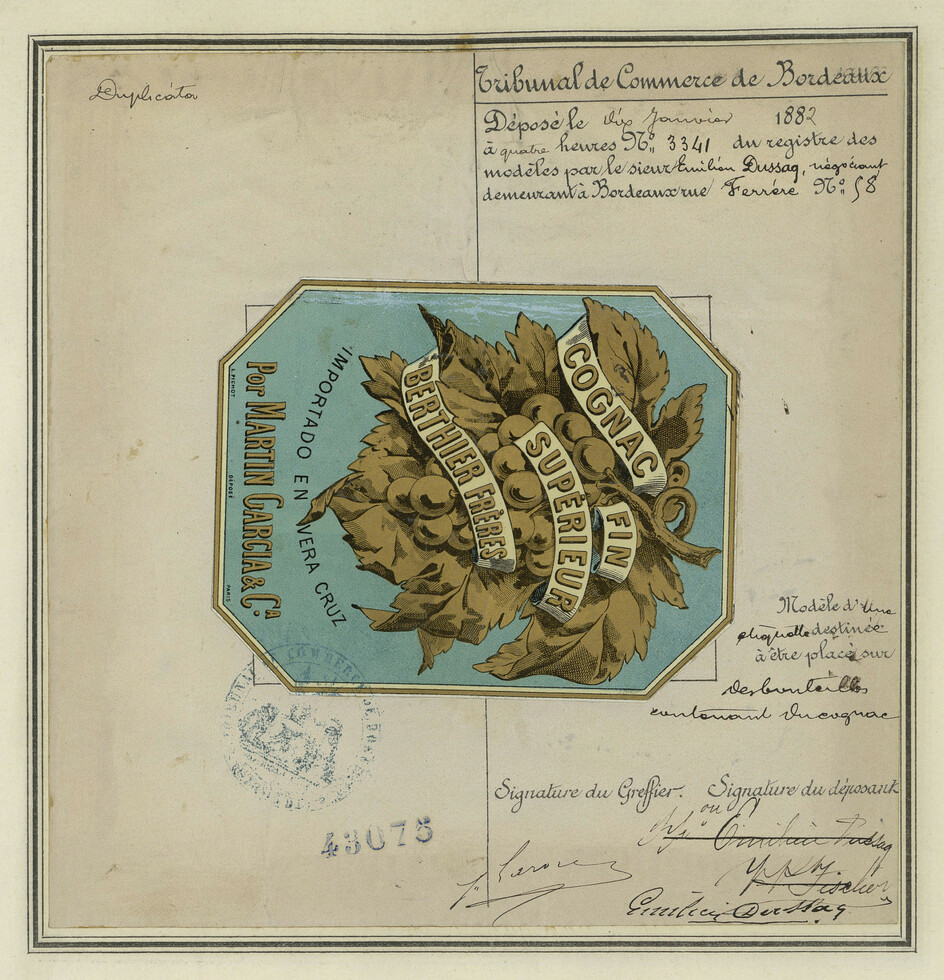 Duplicata
Tribunal de Commerce de Bordeaux
Déposé le dix Janvier 1882
à quatre heures No. 3341 du registre des
modèles par le sieur Emilien Dussaq, négociant
demeurant à Bordeaux rue Ferrère No. 58
COGNAC
FIN
SUPÉRIEUR
BERTHIER FRÈRES
IMPORTADO EN VERA CRUZ
Por MARTIN GARCIA & CA
L. PICHOT DÉPOSÉ PARIS
Modèle d'une
étiquette destinée
à être placé sur
des bouteilles
contenant du cognac
Signature du Greffier. Signature du déposant
ou
Emilien Dussaq
Fischer
Emilien Dussaq
43075